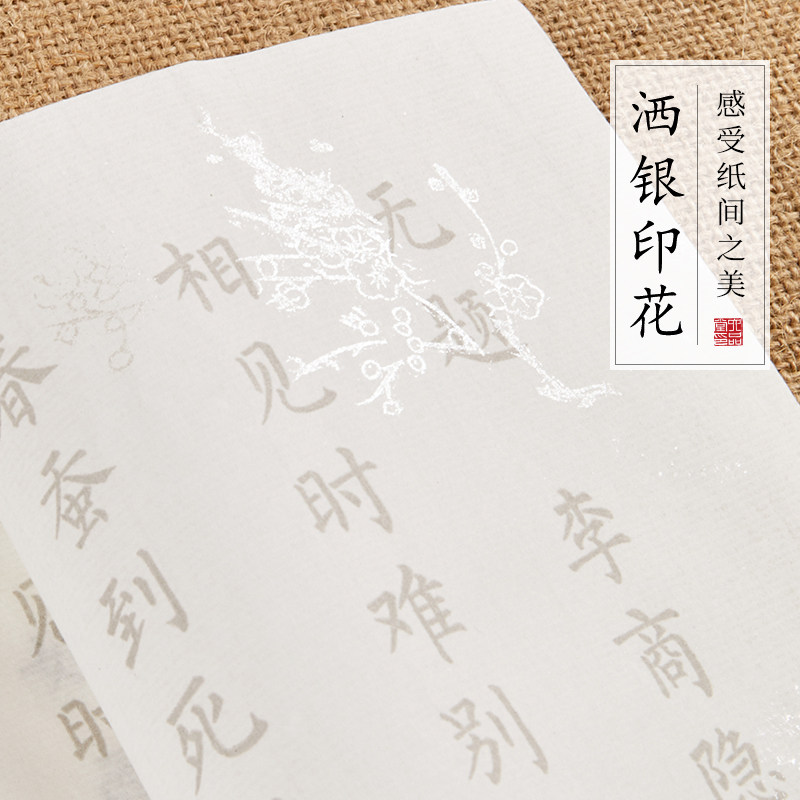 感受纸间之美
洒银印花
无题
李商隐
相见时难别
春蚕到死
见
时